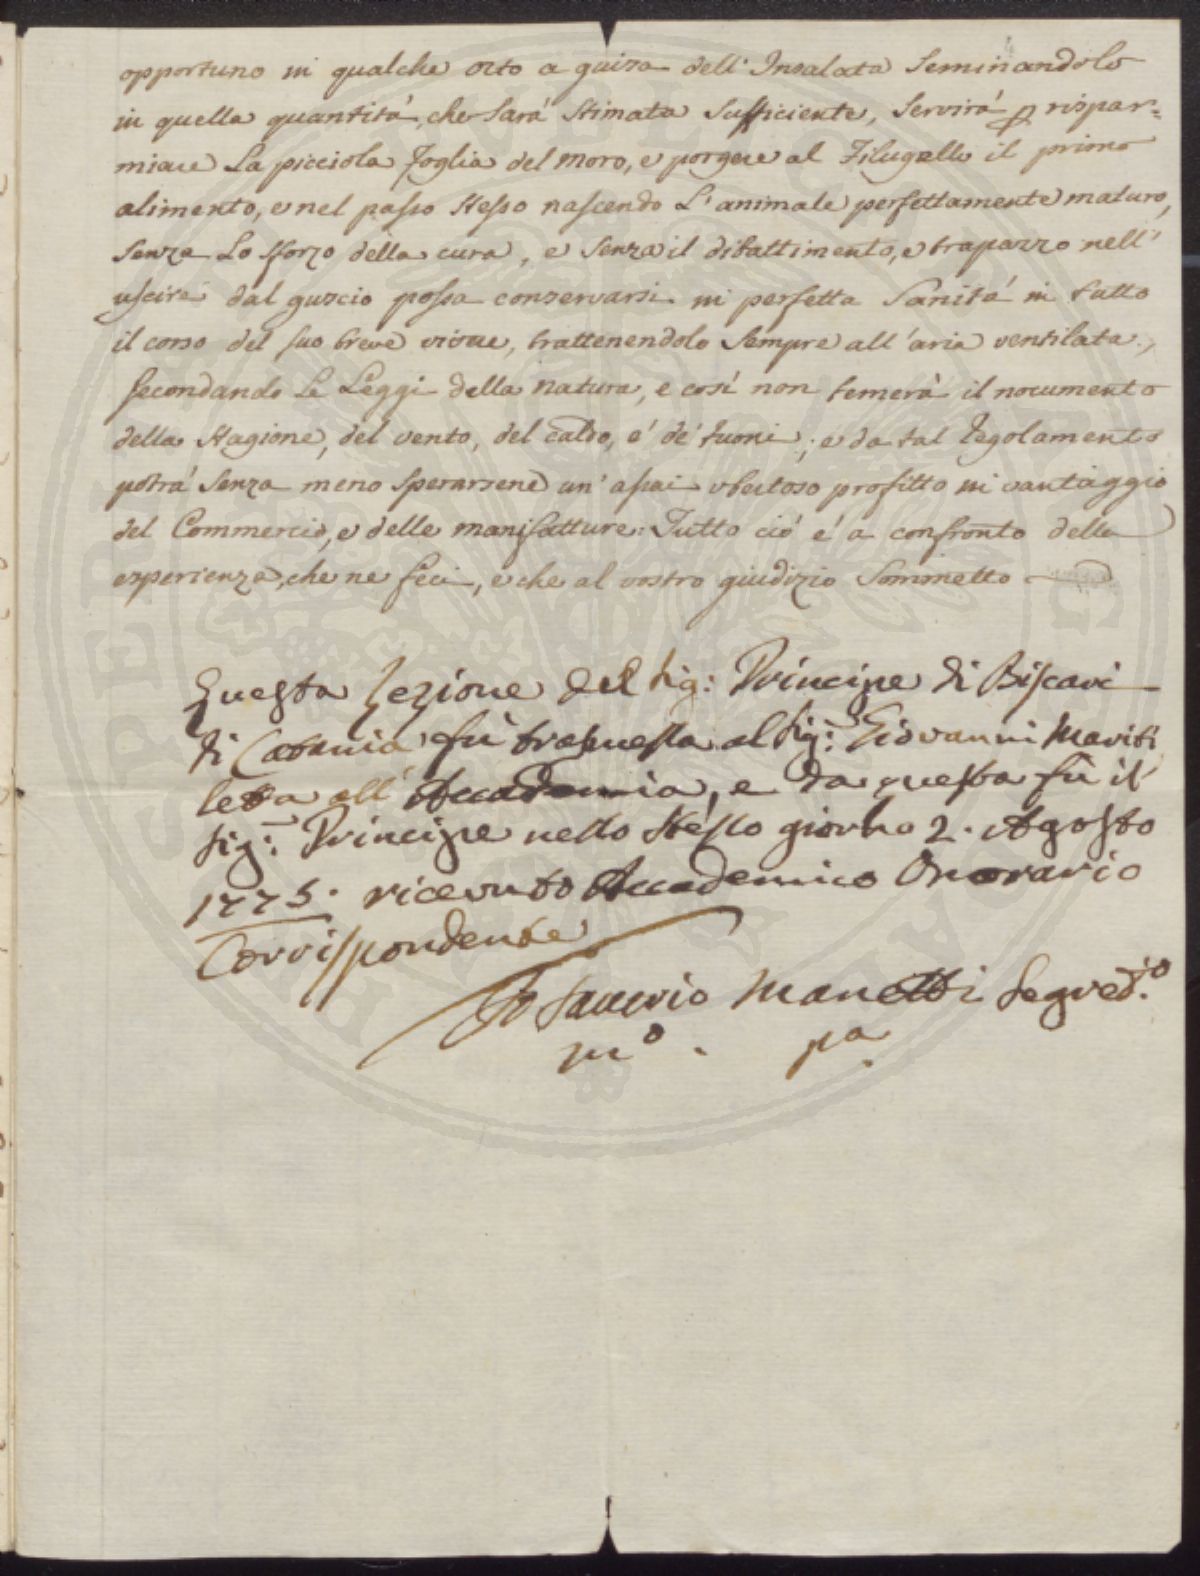 opportuno in qualche orto a guisa dell' Insalata Seminandolo
in quella quantità, che Sarà Stimata Sufficiente, Servirà p rispar=
miare La picciola foglia del moro, e porgere al Filugello il primo
alimento, e nel passo stesso nascendo L' animale perfettamente maturo,
Senza Lo sforzo della cura, e Senza il dibattimento, e trapazzo nell'
uscire dal guscio possa conservarsi in perfetta Sanità in tutto
il corso del suo breve vivere, trattenendolo Sempre all' aria ventilata,
secondando Le Leggi della natura, e così non temerà il nocumento
della Stagione, del vento, del caldo, e' de' tuoni; e da tal regolamento
potrà Senza meno Sperarsene un' assai ubertoso profitto in vantaggio
del Commercio, e delle manifatture: Tutto ciò è a confronto della
esperienza, che ne feci, e che al vostro giudizio Sommetto
Questa Lezione del Sig: Principe di Biscari
di Catania fù trasmessa al Sig: Giovanni Mariti
letta all' Accademia, e da questa fù il
Sig: Principe nello stesso giorno 2. Agosto
1775. ricevuto Accademico Onorario
Corrispondente
Saverio Manetti Segret.º
mº. pa.